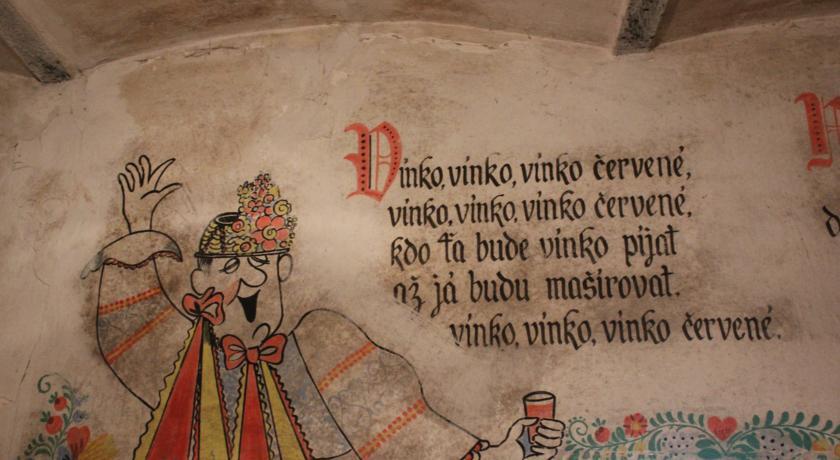 Vinko, vinko, vinko červené,
vinko, vinko, vinko červené,
kdo ťa bude vinko píjat
až já budu mašírovat.
vinko, vinko, vinko červené.